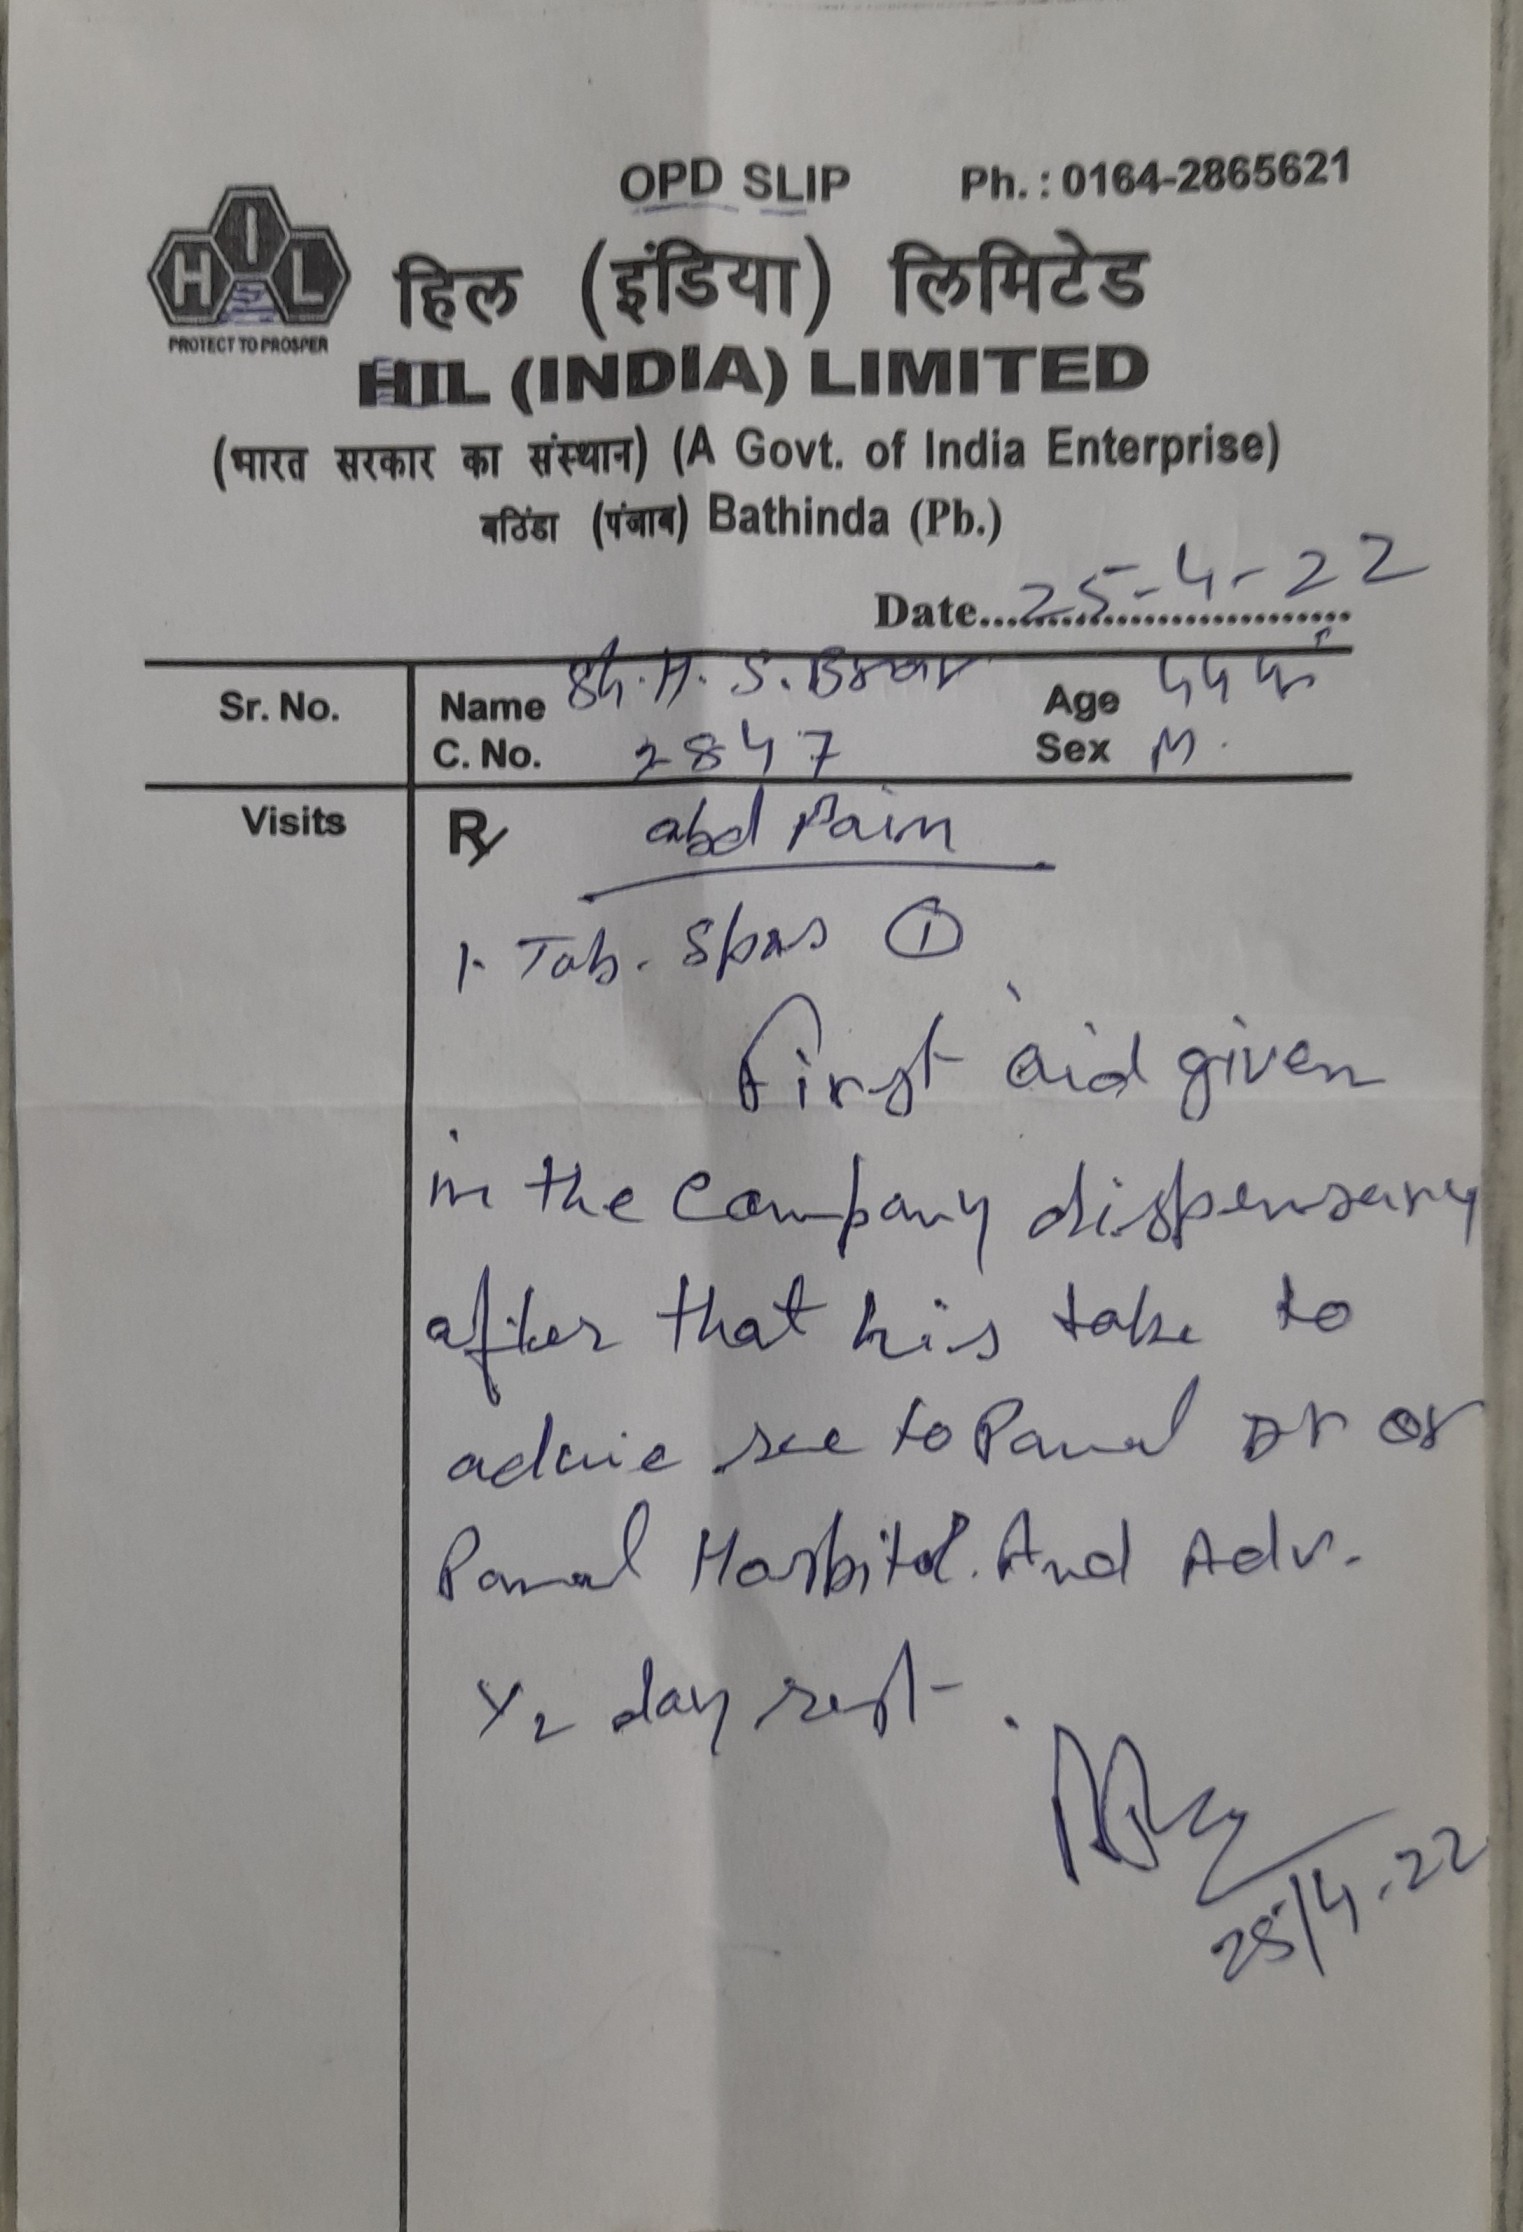 OPD SLIP Ph. : 0164-2865621
HIL
PROTECT TO PROSPER
हिल (इंडिया) लिमिटेड
HIL (INDIA) LIMITED
(भारत सरकार का संस्थान) (A Govt. of India Enterprise)
बठिंडा (पंजाब) Bathinda (Pb.)
Date... 25-4-22
Sr. No. Name Sh. H. S. Brar Age 44
C. No. 2847 Sex M.
Visits Rx abd Pain
1. Tab. Spas ①
First aid given
in the Company dispensary
after that his take to
advie see to Panal Dr or
Panal Hospital. And Adv.
day rest.
25/4.22